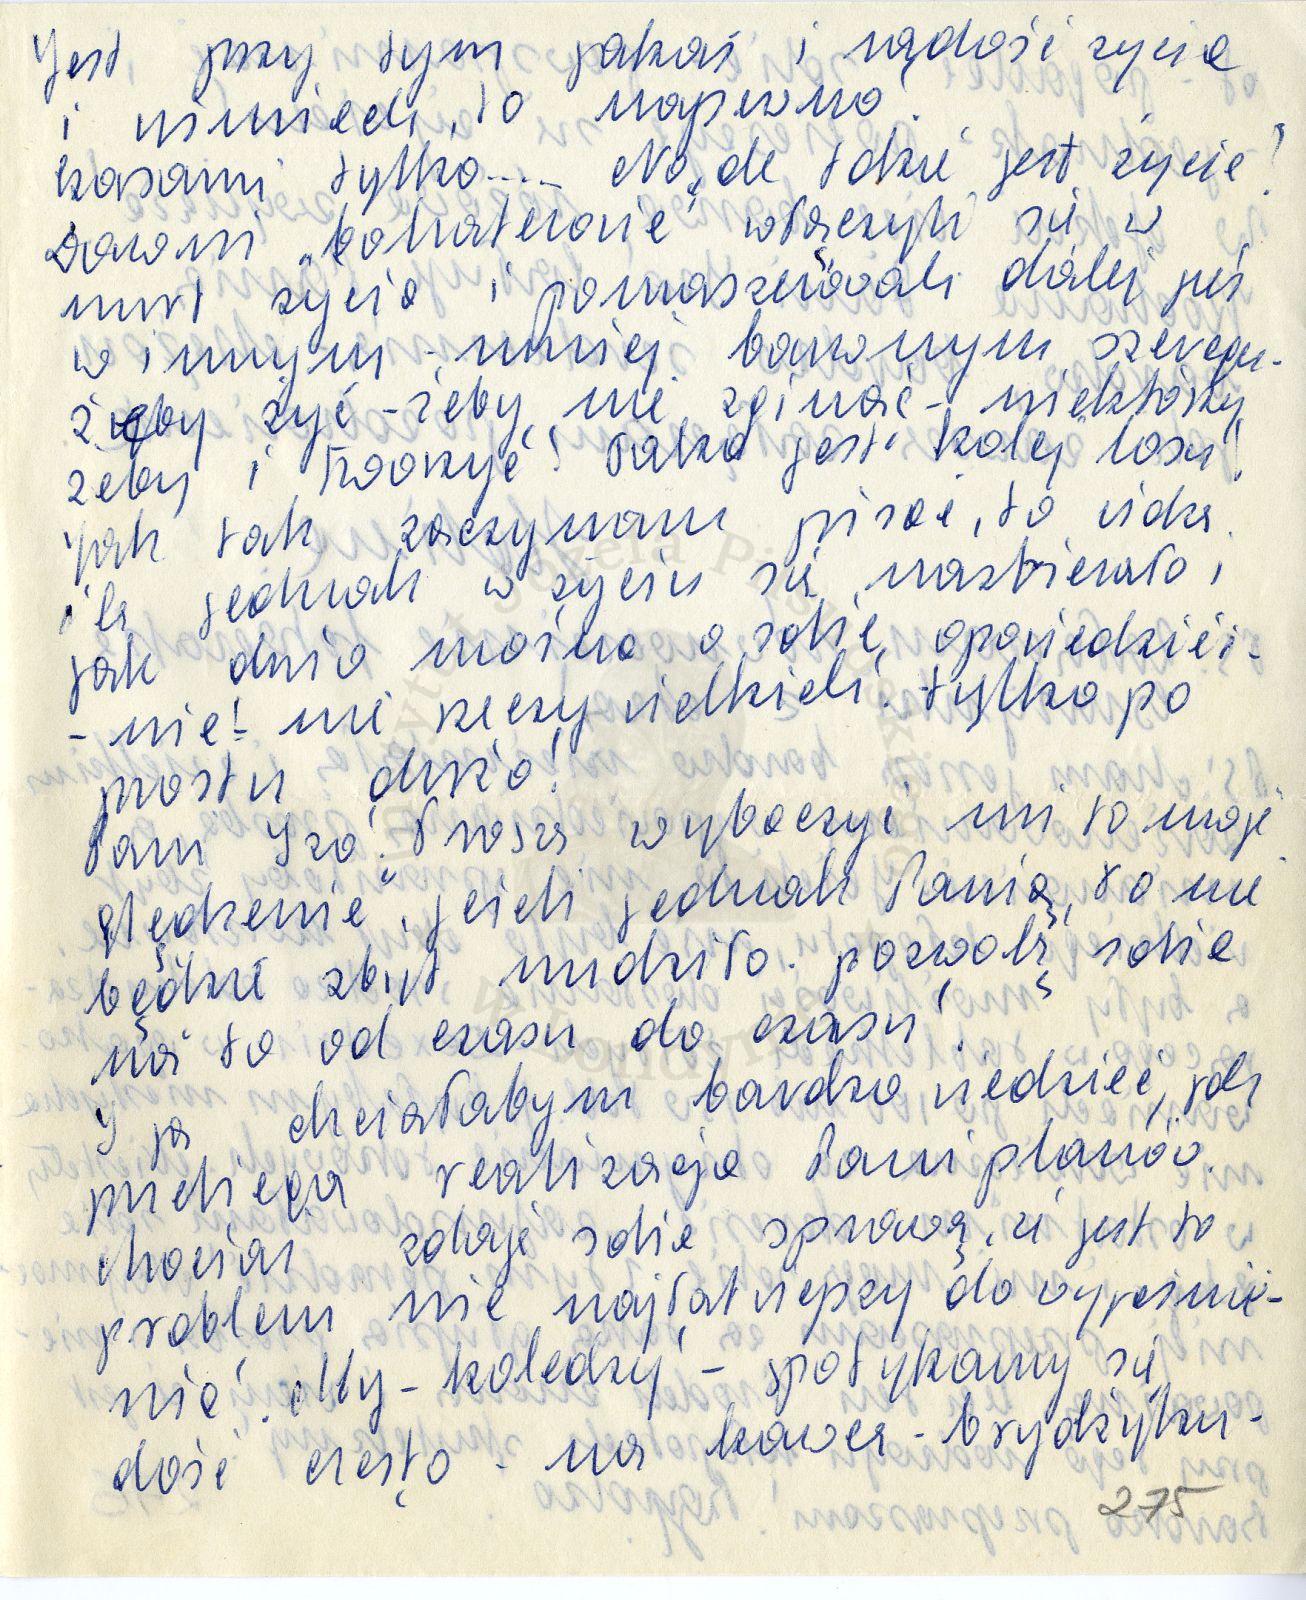 Jest przy tym jakaś i rądość życia
i uśmiech, to napewno.
Czasami tylko.... No, ale takie jest życie!
Dawni „bohaterowie" włączyli się w
nurt życia i pomaszerowali dalej już
w innym - mniej barwnym szeregu -
żeby żyć - żeby nie zginąć - niektórzy
żeby i tworzyć! Taka jest kolej losu!
Jak tak zaczynam pisać, to widzę
ile jednak w życiu się nazbierało i
jak dużo można o sobie opowiedzieć -
- nie! nie rzeczy wielkich. tylko po
prostu dużo!
Pani Izo! Proszę wybaczyć mi to moje
„ględzenie", jeśli jednak Panią, to nie
będzie zbyt nudziło. pozwolę sobie
na to od czasu do czasu!
I ja chciałabym bardzo wiedzieć, jak
przebiega realizacja Pani planów.
chociaż zdaję sobie sprawę, że jest to
problem nie najłatwiejszy do wyjaśnie-
nia. My - koledzy - spotykamy się
dość często - na kawce - brydżyku -
275
Instytut Józefa Piłsudskiego
w Londynie